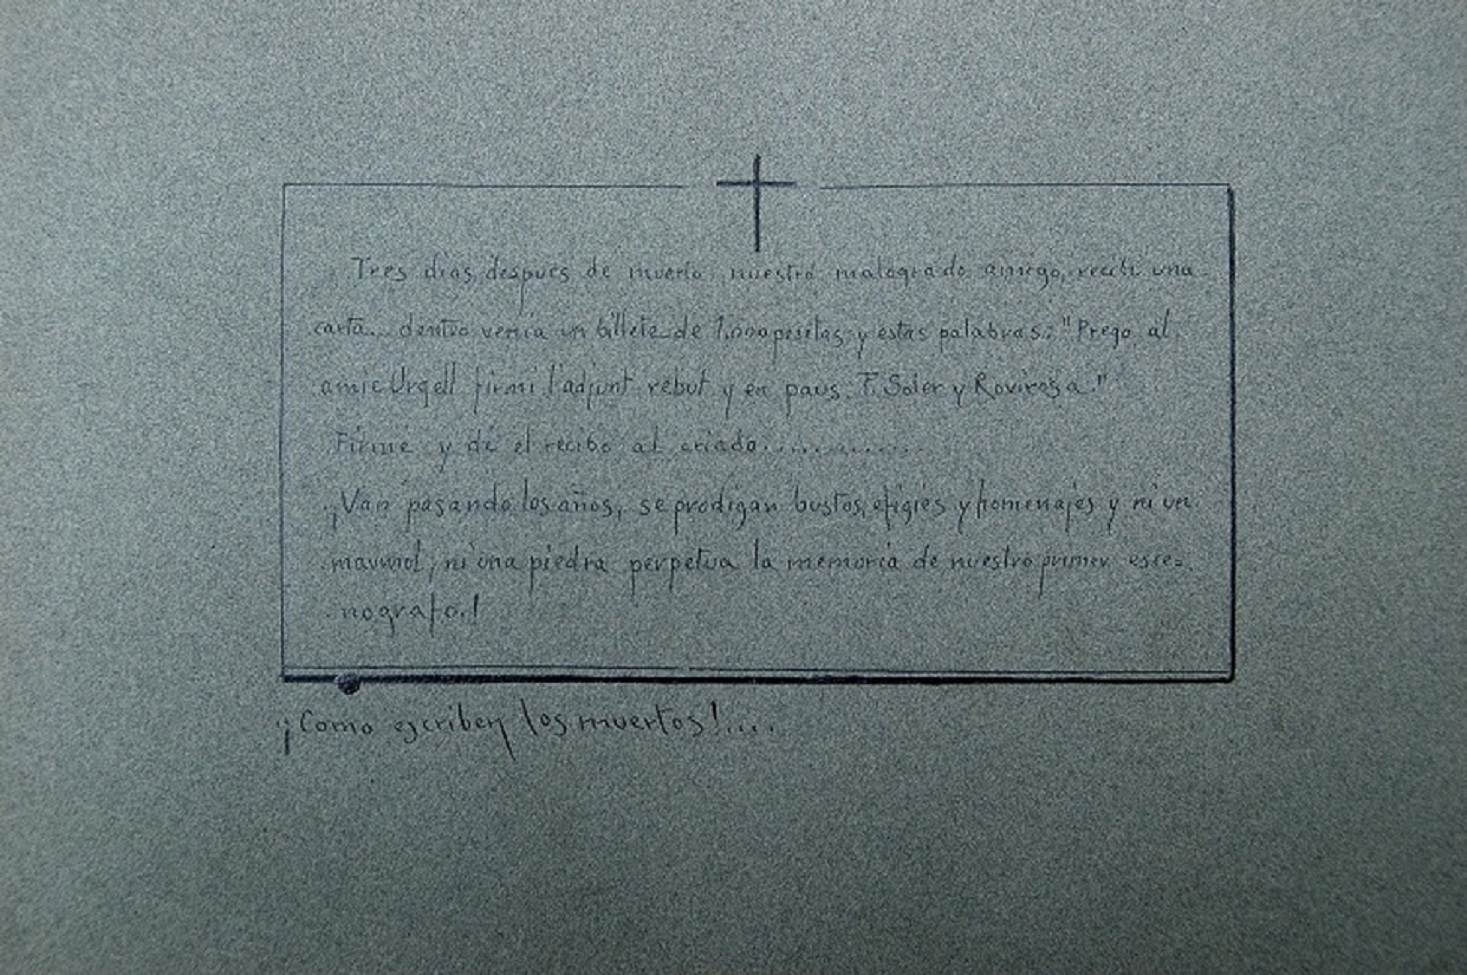 Tres dias despues de muerto nuestro malogrado amigo, recibi una
carta... dentro venia un billete de 1.000 pesetas y estas palabras: "Prego al
amic Urgell firmi l'adjunt rebut y en paus. F. Soler y Rovirosa."
Firmé y dí el recibo al criado..............
¡Van pasando los años, se prodigan bustos, efigies y homenajes y ni un
marmol, ni una piedra perpetua la memoria de nuestro primer esce=
nografo.!
¡Como escriben los muertos!....